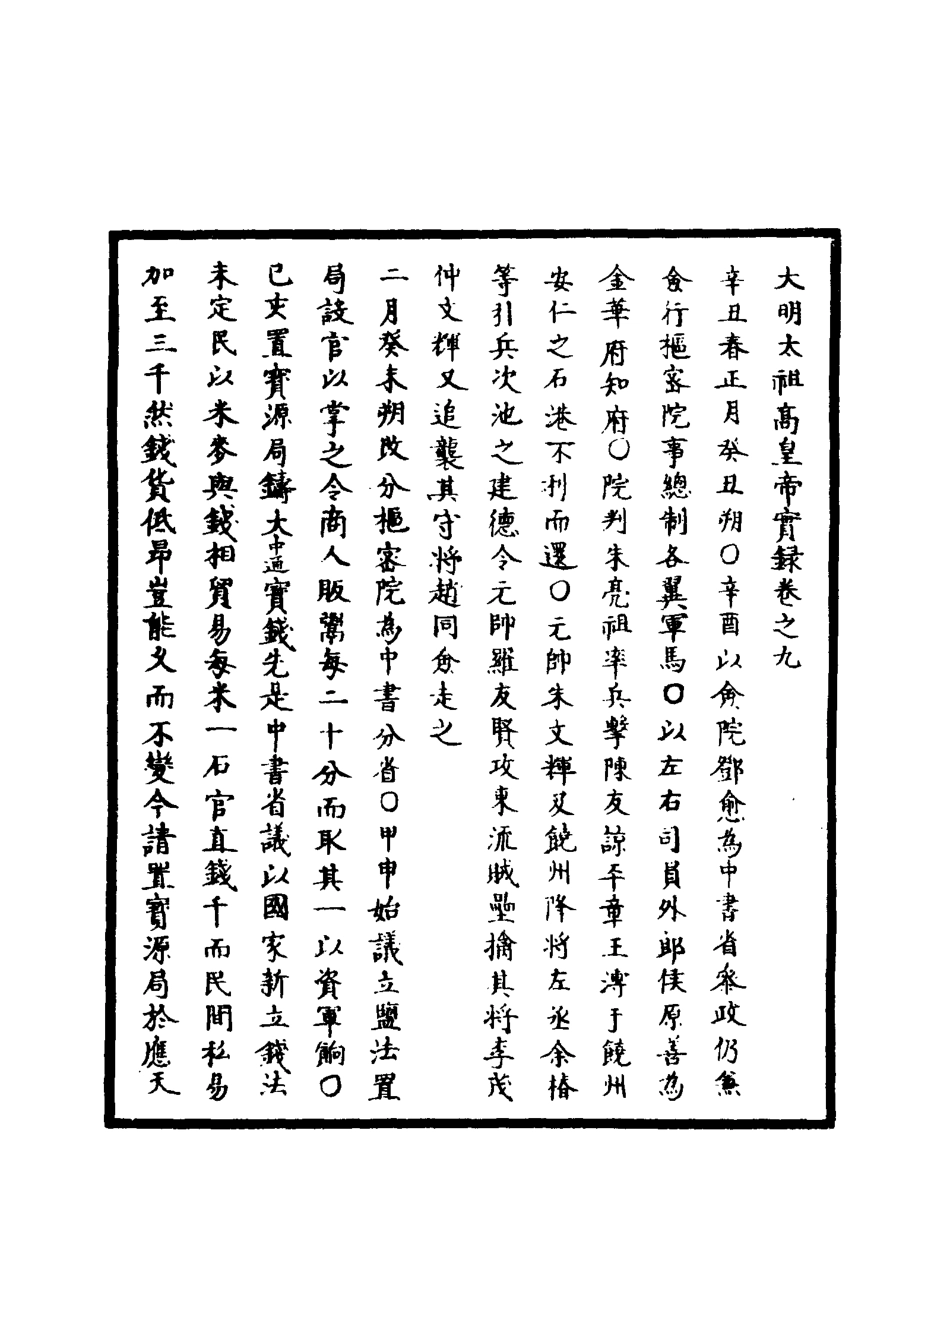 大明太祖高皇帝實錄卷之九
辛丑春正月癸丑朔○辛酉以僉院鄧愈為中書省參政仍兼
僉行樞密院事總制各翼軍馬○以左右司員外郎侯原善為
金華府知府○院判朱亮祖率兵擊陳友諒平章王溥于饒州
安仁之石港不利而還○元帥朱文輝及饒州降將左丞余椿
等引兵次池之建德令元帥羅友賢攻東流賊壘擒其將李茂
仲文輝又追襲其守將趙同僉走之
二月癸未朔改分樞密院為中書分省○甲申始議立鹽法置
局設官以掌之令商人販鬻每二十分而取其一以資軍餉○
己亥置寶源局鑄大中通寶錢先是中書省議以國家新立錢法
未定民以米麥與錢相貿易每米一石官直錢千而民間私易
加至三千然錢貨低昂豈能久而不變今請置寶源局於應天